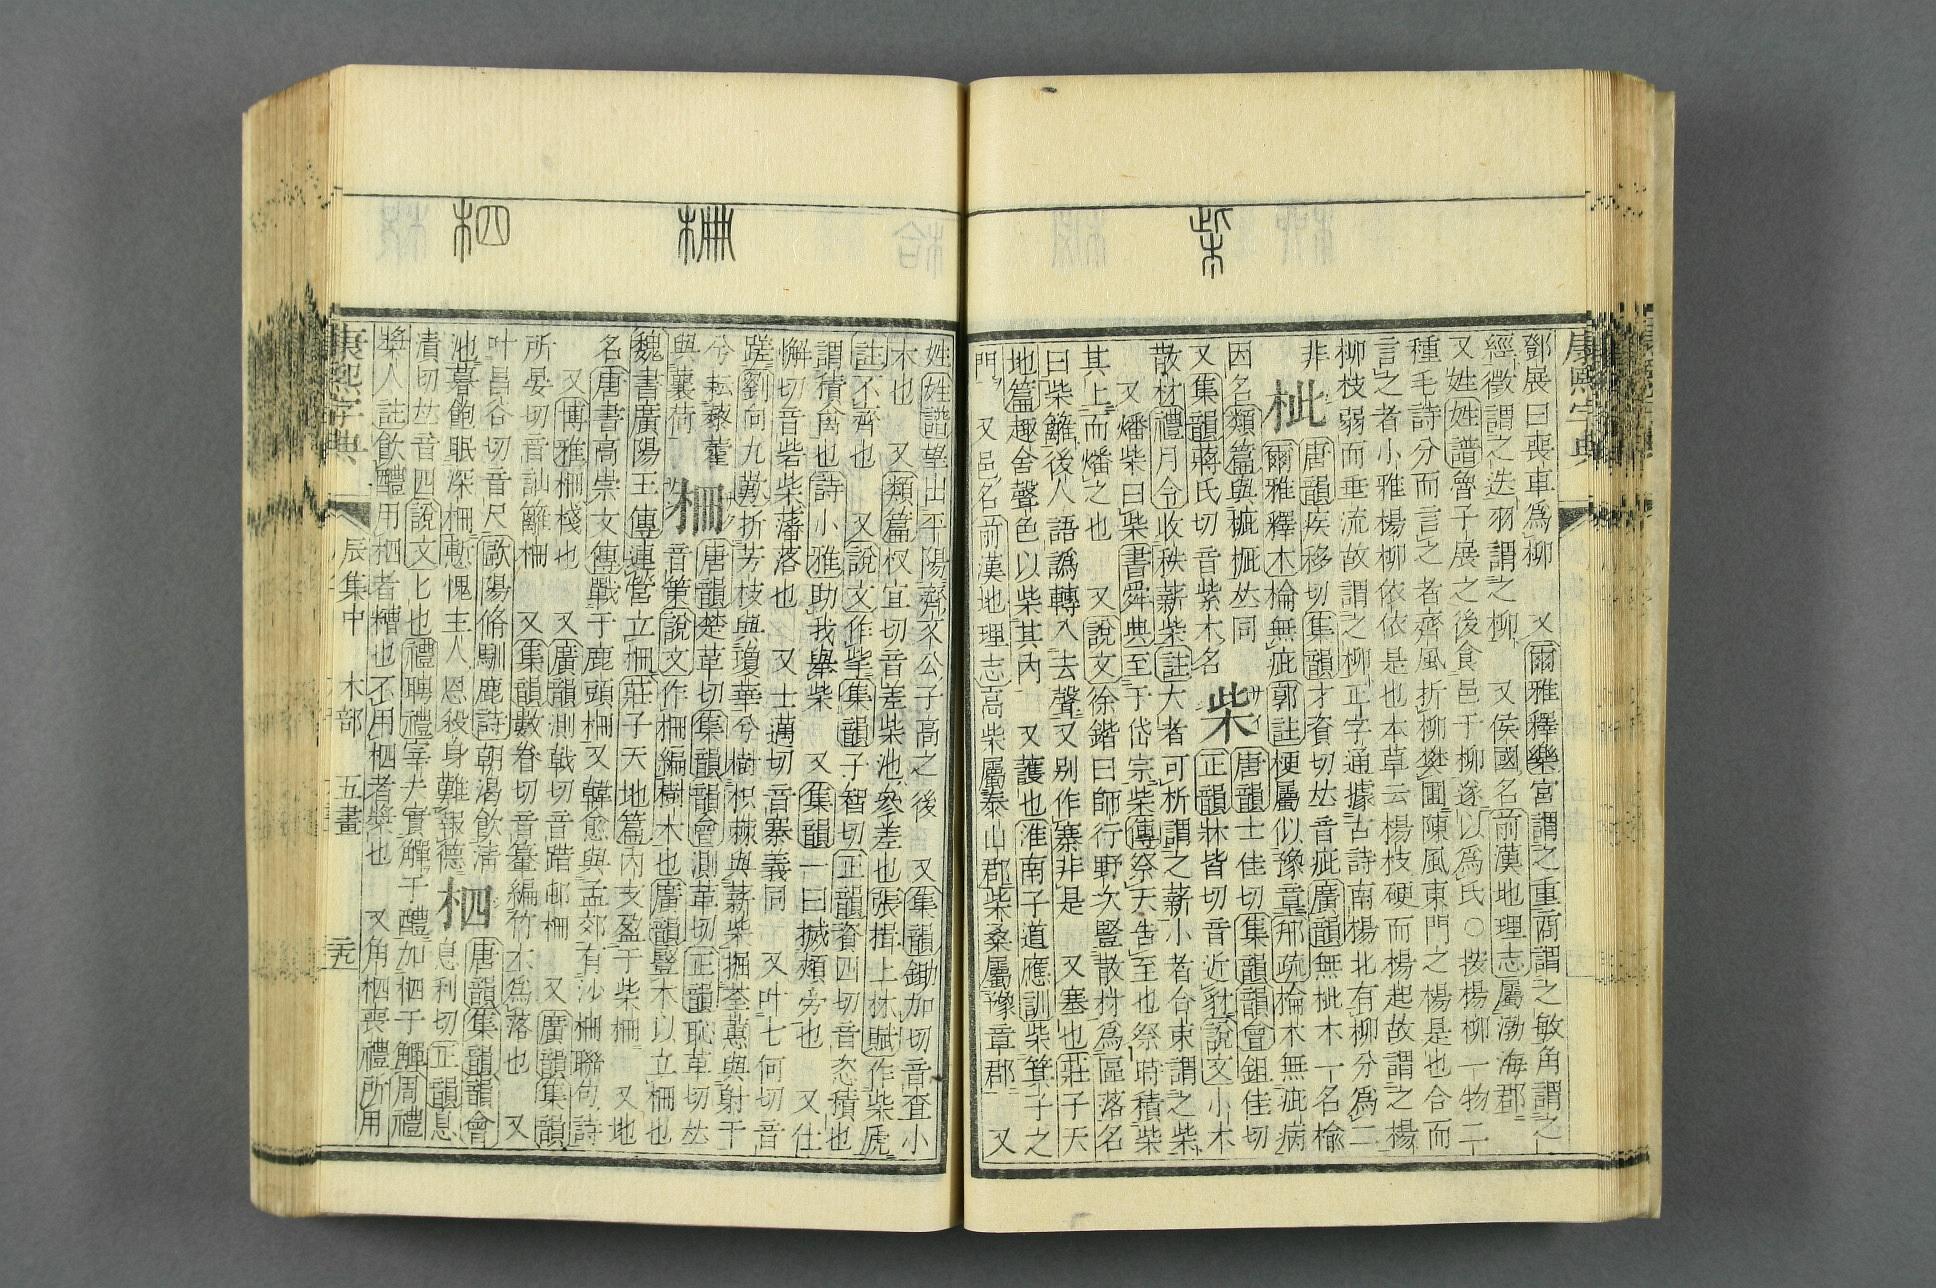 柴
鄧展曰喪車爲柳　又爾雅釋樂宮謂之重商謂之敏角謂之
經徵謂之迭羽謂之柳　又侯國名前漢地理志屬渤海郡
又姓姓譜魯子展之後食邑于柳遂以爲氏○按楊柳一物二
種毛詩分而言之者齊風折柳樊圃陳風東門之楊是也合而
言之者小雅楊柳依依是也本草云楊枝硬而楊起故謂之楊
柳枝弱而垂流故謂之柳正字通據古詩南楊北有柳分爲二
非　枇　唐韻疾移切集韻才資切𠀤音疵廣韻無枇木一名楡
爾雅釋木棆無疵郭註梗屬似豫章那疏棆木無疵病
因名類篇與樜榹𠀤同　柴　唐韻士佳切集韻韻會鉏佳切
又集韻蔣氏切音紫木名　正韻牀皆切音近豺說文小木
散材禮月令收秩薪柴註大者可析謂之薪小者合束謂之柴
又燔柴曰柴書舜典至于岱宗柴傳祭天告至也祭時積柴
其上而燔之也　又說文徐鍇曰師行野次豎散材爲區落名
曰柴籬後人語譌轉入去聲又别作寨非是　又塞也莊子天
地篇趣舍聲色以柴其內　又護也淮南子道應訓柴箕子之
門　又邑名前漢地理志高柴屬泰山郡柴桑屬豫章郡　又
柵
柶
姓姓譜望出平陽齊文公子高之後　又集韻鋤加切音査小
木也　又類篇杈宜切音差柴池參差也張揖上林賦作柴虒
註不齊也　又說文作㧘集韻子智切正韻資四切音恣積也
謂積禽也詩小雅助我舉柴　又集韻一曰搣頰旁也　又仕
懈切音砦柴藩落也　又士邁切音寨義同　又叶七何切音
蹉劉向九歎折芳枝與瓊華兮樹枳棘與薪柴掘荃蕙與射干
兮耘藜藿與蘘荷　柵　唐韻楚革切集韻韻會測革切正韻恥革切𠀤
音策說文作柵編樹木也廣韻豎木以立柵也
魏書廣陽王傳連營立柵莊子天地篇內支盈于柴柵　又地
名唐書高崇文傳戰于鹿頭柵又韓愈與孟郊有沙柵聯句詩
又博雅柵棧也　又廣韻測戟切音踖邨柵　又廣韻集韻
所晏切音訕籬柵　又集韻數眷切音䉵編竹木爲落也　又
叶昌谷切音尺歐陽脩馴鹿詩朝渴飮淸
池暮飽眠深柵慙愧主人恩殺身難報德　柶　唐韻集韻韻會
息利切正韻息
漬切𠀤音四說文匕也禮聘禮宰夫實觶于醴加柶于觶周禮
漿人註飮醴用柶者糟也不用柶者漿也　又角柶喪禮所用
康熙字典　辰集中　木部　五畫　三九
康熙字典